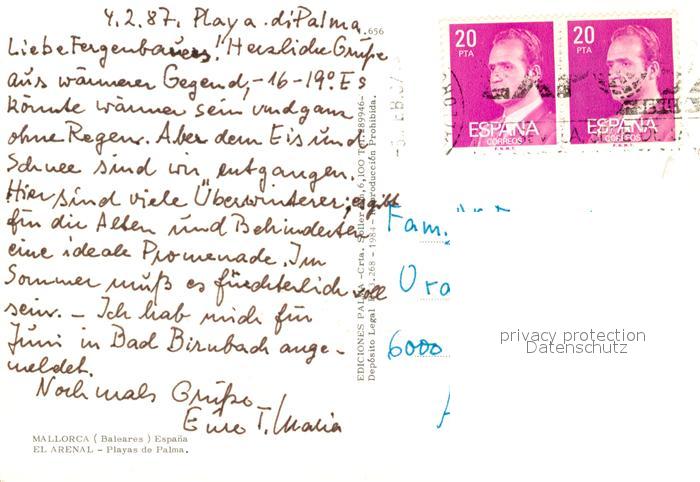 4.2.87. Playa di Palma.
Liebe Fergenbauers! Herzliche Grüße
aus wärmerer Gegend, - 16 - 19°. Es
könnte wärmer sein und ganz
ohne Regen. Aber dem Eis und
Schnee sind wir entgangen.
Hier sind viele Überwinterer; es gibt
für die Alten und Behinderten
eine ideale Promenade. Im
Sommer muß es fürchterlich voll
sein. - Ich hab mich für
Juni in Bad Birnbach ange-
meldet.
Nochmals Grüße
Eure T. Maria
MALLORCA (Baleares) España
EL ARENAL - Playas de Palma.
656
EDICIONES PALMA - Crta. Sóller, 6,100
Depósito Legal 3.268 - 1984 - Reproducción Prohibida.
20
PTA
ESPAÑA
CORREOS
F.N.M.T.
20
PTA
ESPAÑA
CORREOS
F.N.M.T.
Fam.
6000
privacy protection
Datenschutz